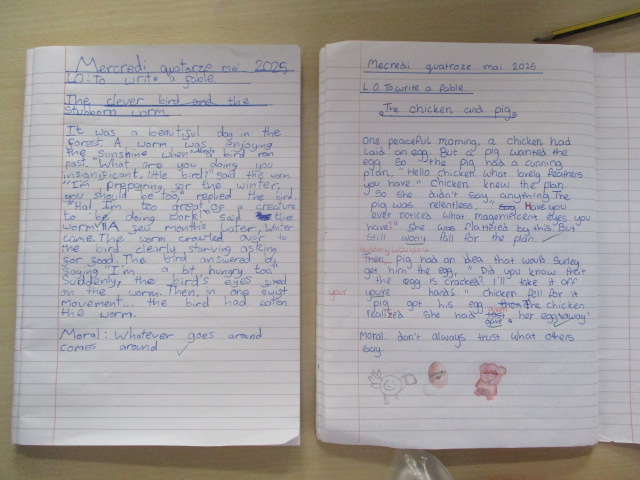 Mercredi quatorze mai 2025
LO: to write a fable
The clever bird and the
Stubborn worm
It was a beautiful day in the
forest. A worm was enjoying
the sunshine when a bird ran
past. "What are you doing you
insignificant, little bird?" said the worm.
"I'm preparing for the winter,
you should be too," replied the bird.
"Ha! I'm too great of a creature
to be doing work!" said the
worm. A few months later, Winter
came. The worm crawled over to
the bird clearly starving asking
for food. The bird answered by
saying "I'm a bit hungry too."
Suddenly, the bird's eyes fixed
on the worm. Then, in one swift
movement... the bird had eaten
the worm.
Moral: Whatever goes around
comes around
Mecredi quatroze mai 2025
L.O. To write a fable.
The chicken and pig
One peaceful morning, a chicken had
laid an egg. But a pig wanted the
egg. So the pig had a cunning
plan, "Hello chicken what lovely feathers
you have." Chicken knew the plan
So she didn't say anything. The
pig was relentless. " Have you
ever noticed what magenificent eyes you
have?" She was flattered by this. But
Still won't fall for the plan.
Then pig had an idea that would surley
get him the egg, " Did you know that
the egg is cracked? I'll take it off
your you're hands " chicken fell for it
pig got his egg then The chicken
realized she had gave her egg away!
Moral: don't always trust what others
say